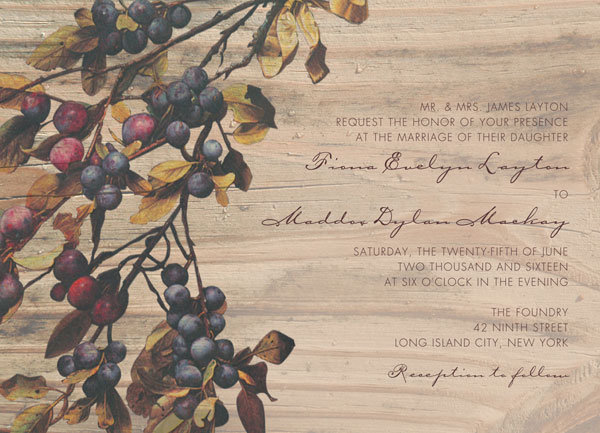 MR. & MRS. JAMES LAYTON
REQUEST THE HONOR OF YOUR PRESENCE
AT THE MARRIAGE OF THEIR DAUGHTER
Fiona Evelyn Layton
TO
Maddox Dylan Mackay
SATURDAY, THE TWENTY-FIFTH OF JUNE
TWO THOUSAND AND SIXTEEN
AT SIX O'CLOCK IN THE EVENING
THE FOUNDRY
42 NINTH STREET
LONG ISLAND CITY, NEW YORK
Reception to follow